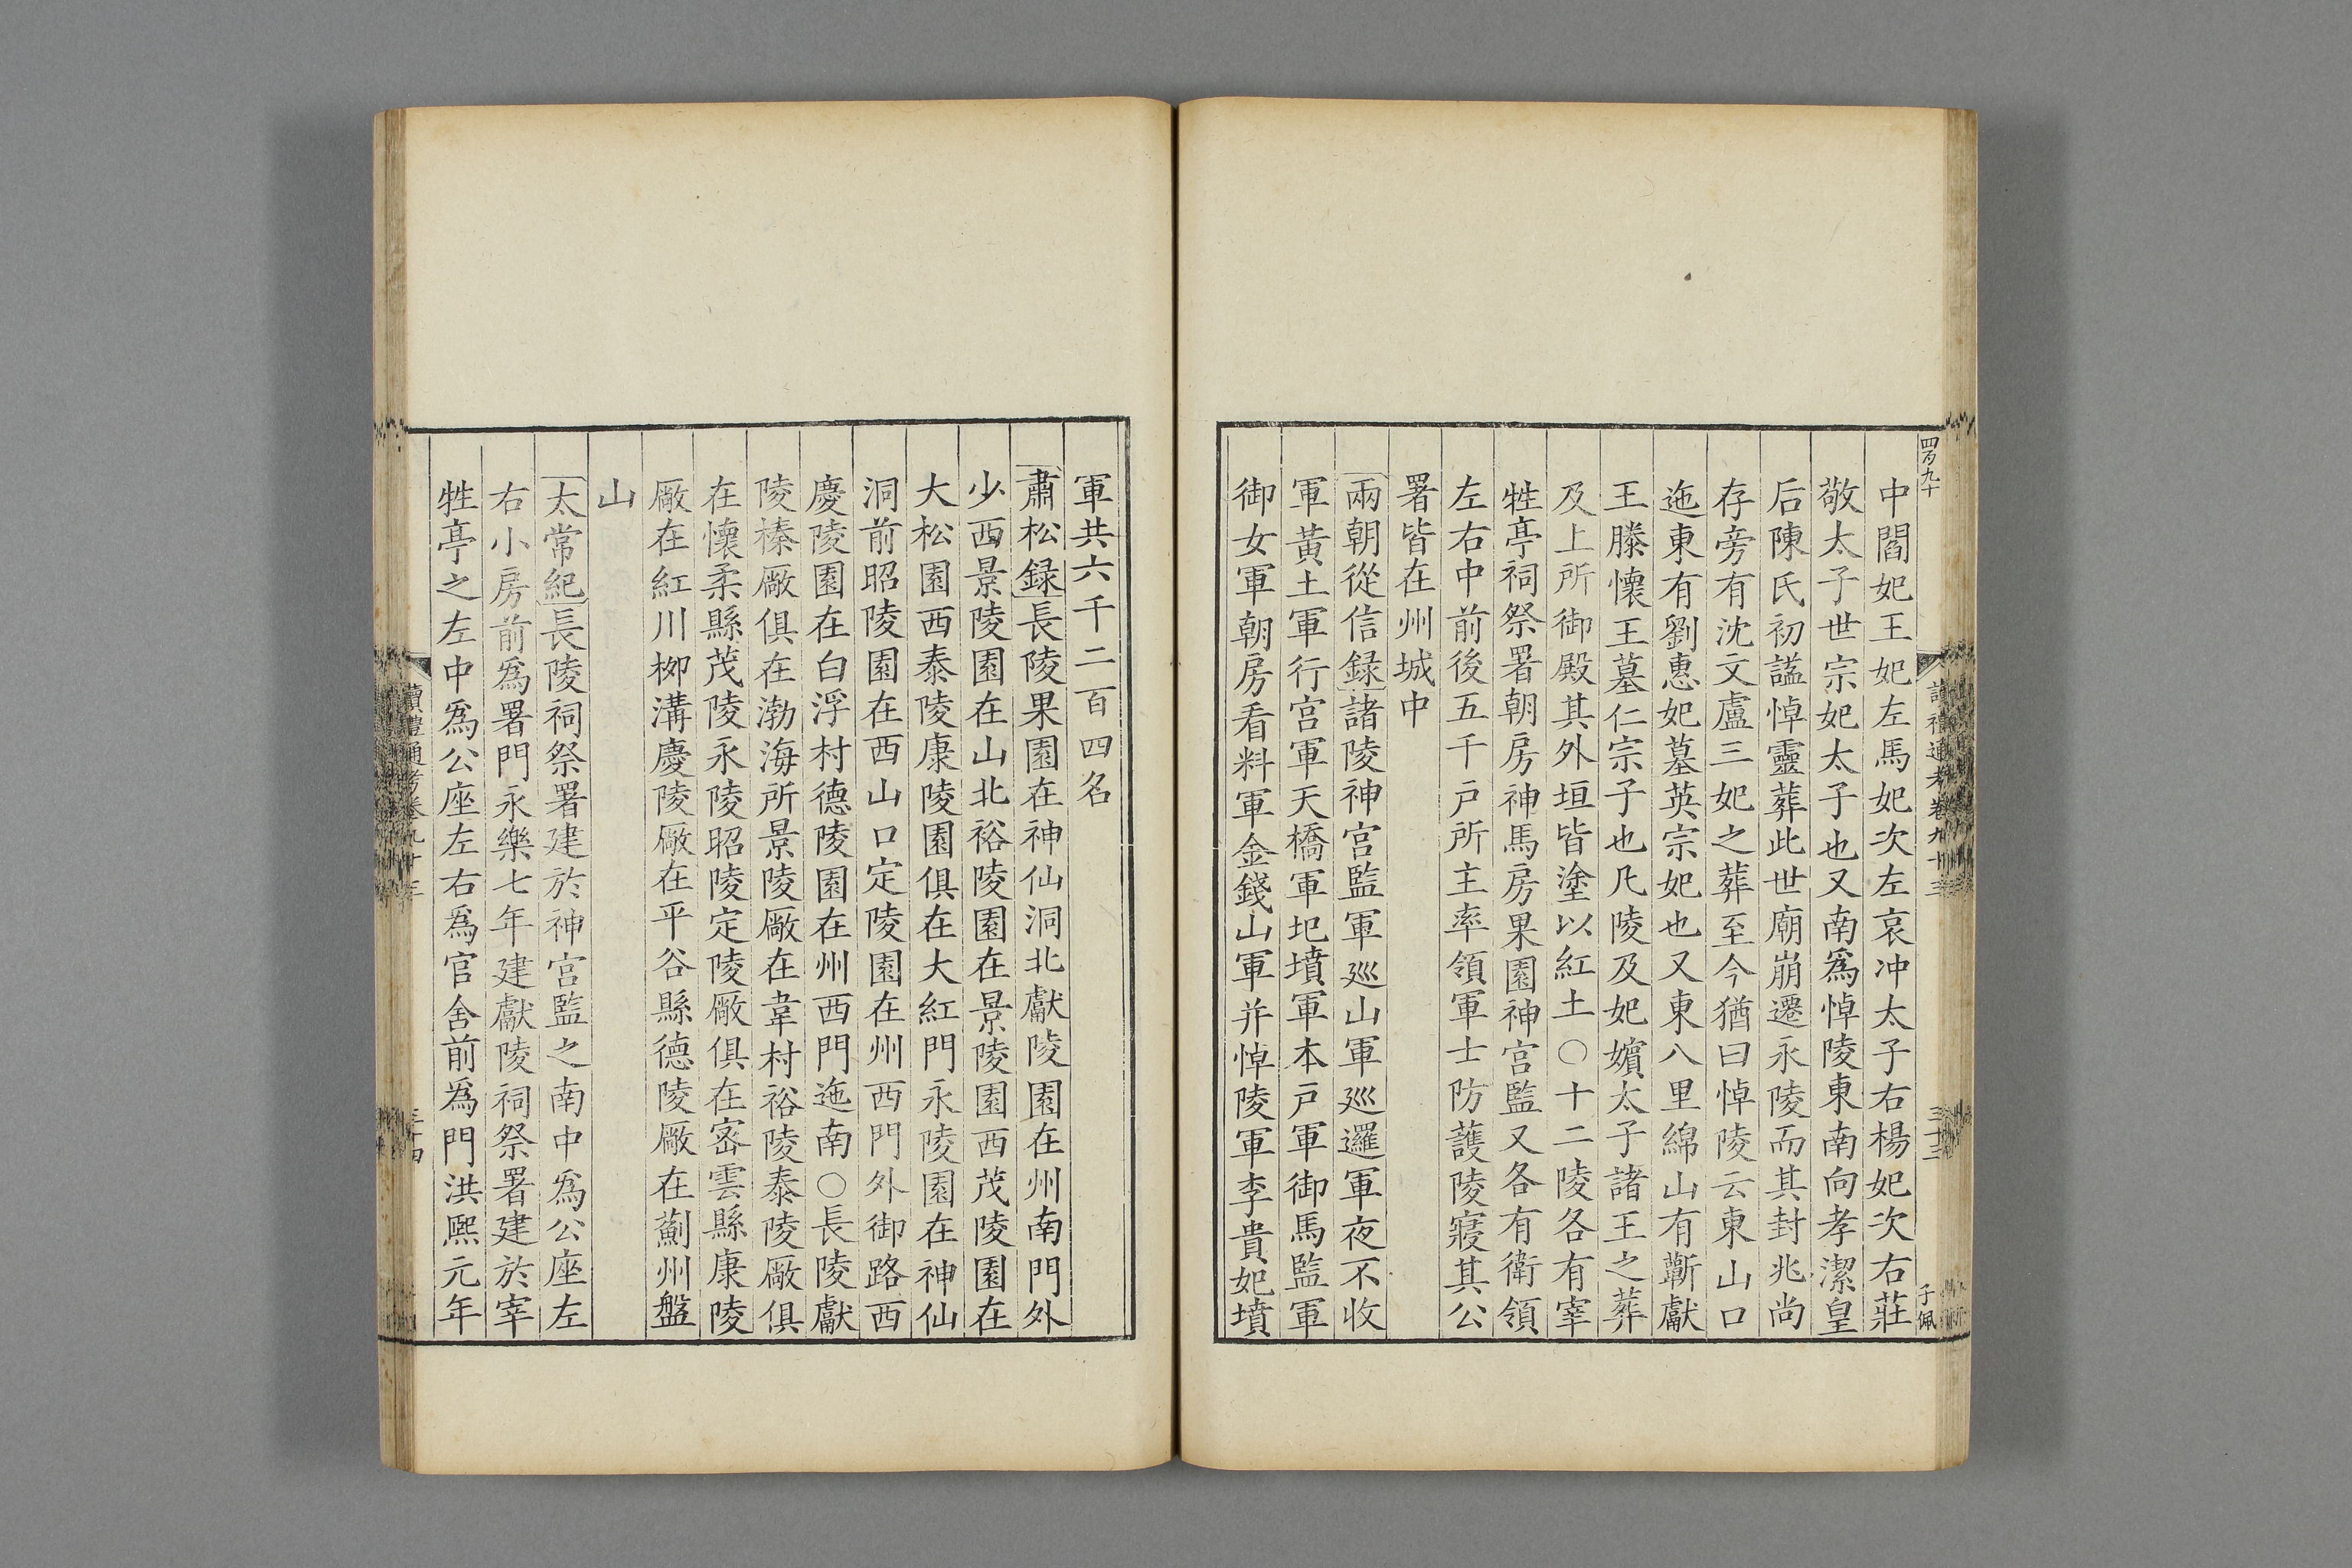 四百九十
讀禮通考卷九十三
三十三
子佩
中閻妃王妃左馬妃次左哀冲太子右楊妃次右莊
敬太子世宗妃太子也又南爲悼陵東南向孝潔皇
后陳氏初謚悼靈葬此世廟崩遷永陵而其封兆尚
存旁有沈文盧三妃之葬至今猶曰悼陵云東山口
迤東有劉惠妃墓英宗妃也又東八里綿山有蘄獻
王滕懷王墓仁宗子也凡陵及妃嬪太子諸王之葬
及上所御殿其外垣皆塗以紅土○十二陵各有宰
牲亭祠祭署朝房神馬房果園神宮監又各有衛領
左右中前後五千戸所主率領軍士防護陵寢其公
署皆在州城中
兩朝從信録諸陵神宮監軍廵山軍廵邏軍夜不收
軍黃土軍行宮軍天橋軍圯墳軍本戸軍御馬監軍
御女軍朝房看料軍金錢山軍并悼陵軍李貴妃墳
軍共六千二百四名
肅松録長陵果園在神仙洞北獻陵園在州南門外
少西景陵園在山北裕陵園在景陵園西茂陵園在
大松園西泰陵康陵園俱在大紅門永陵園在神仙
洞前昭陵園在西山口定陵園在州西門外御路西
慶陵園在白浮村德陵園在州西門迤南○長陵獻
陵榛廠俱在渤海所景陵廠在韋村裕陵泰陵廠俱
在懷柔縣茂陵永陵昭陵定陵廠俱在密雲縣康陵
廠在紅川栁溝慶陵廠在平谷縣德陵廠在薊州盤
山
太常紀長陵祠祭署建於神宮監之南中爲公座左
右小房前爲署門永樂七年建獻陵祠祭署建於宰
牲亭之左中爲公座左右爲官舍前爲門洪熙元年
讀禮通考卷九十三
三十四